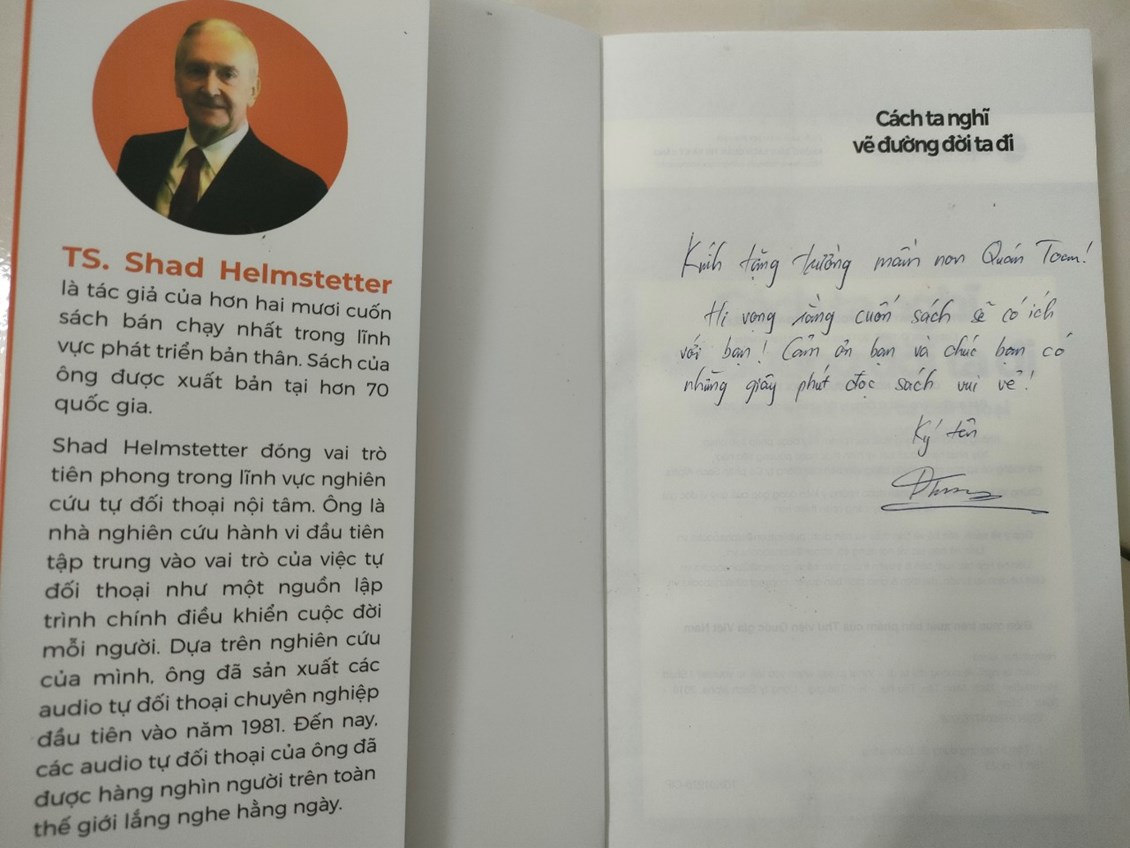 TS. Shad Helmstetter
là tác giả của hơn hai mươi cuốn
sách bán chạy nhất trong lĩnh
vực phát triển bản thân. Sách của
ông được xuất bản tại hơn 70
quốc gia.
Shad Helmstetter đóng vai trò
tiên phong trong lĩnh vực nghiên
cứu tự đối thoại nội tâm. Ông là
nhà nghiên cứu hành vi đầu tiên
tập trung vào vai trò của việc tự
đối thoại như một nguồn lập
trình chính điều khiển cuộc đời
mỗi người. Dựa trên nghiên cứu
của mình, ông đã sản xuất các
audio tự đối thoại chuyên nghiệp
đầu tiên vào năm 1981. Đến nay,
các audio tự đối thoại của ông đã
được hàng nghìn người trên toàn
thế giới lắng nghe hằng ngày.
Cách ta nghĩ
vẽ đường đời ta đi
Kính tặng trường mầm non Quán Toan!
Hi vọng rằng cuốn sách sẽ có ích
với bạn! Cảm ơn bạn và chúc bạn có
những giây phút đọc sách vui vẻ!
Ký tên